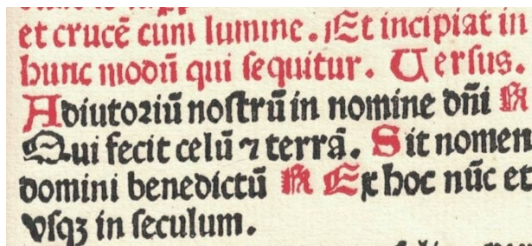 et crucē cum lumine. Et incipiat in
hunc modū qui sequitur. Versus.
Adiutoriū nostrū in nomine dn̄i ℟
Qui fecit celū ⁊ terrā. Sit nomen
domini benedictū ℟ Ex hoc nūc et
vsqꝫ in seculum.